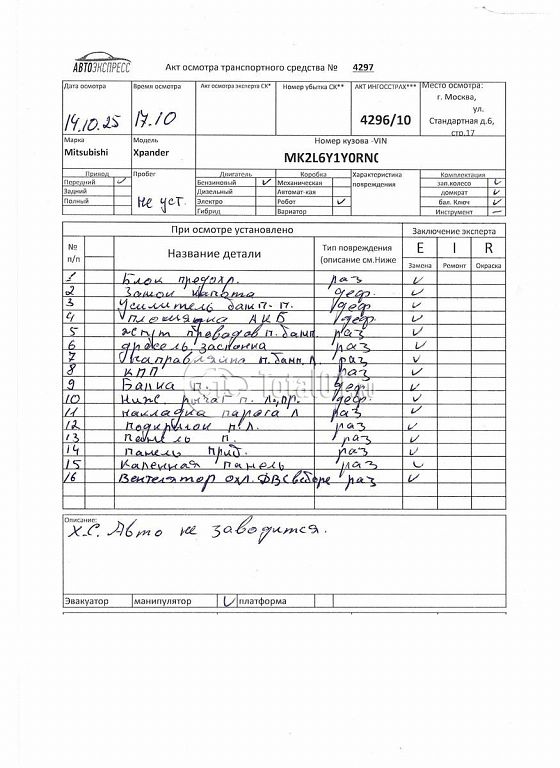 АВТОЭКСПРЕСС
Акт осмотра транспортного средства № 4297
Дата осмотра Время осмотра Акт осмотра эксперта СК* Номер убытка СК** АКТ ИНГОССТРАХ*** Место осмотра:
14.10.25 17.10 4296/10 г. Москва,
ул.
Стандартная д.6,
стр.17
Марка Модель Номер кузова -VIN
Mitsubishi Xpander MK2L6Y1Y0RNC
Привод Пробег Двигатель Коробка Характеристика повреждения Комплектация
Передний ✓ Бензиновый ✓ Механическая зап.колесо ✓
Задний Дизельный Автомат-кая домкрат ✓
Полный не уст. Электро Робот ✓ бал. Ключ ✓
Гибрид Вариатор Инструмент –
При осмотре установлено Заключение эксперта
№ п/п Название детали Тип повреждения (описание см.Ниже E I R
Замена Ремонт Окраска
1 Блок предохр. раз ✓
2 Замок капота деф. ✓
3 Усилитель бамп. п. деф ✓
4 Площадка АКБ деф ✓
5 жгут проводов п. бамп. раз ✓
6 дросель. заслонка раз ✓
7 Направляйща п. бамп. л. раз ✓
8 КПП раз ✓
9 Балка п. деф ✓
10 Ниж. рычаг п. л, пр. деф. ✓
11 накладка парога л раз ✓
12 подкрылок п л. раз ✓
13 п. раз ✓
14 панель приб. раз ✓
15 панель раз ✓
16 Вентелятор охл. ДВС всборе раз ✓
Total01.ru
Описание:
Х.С. Авто не заводится.
Эвакуатор манипулятор ✓ платформа